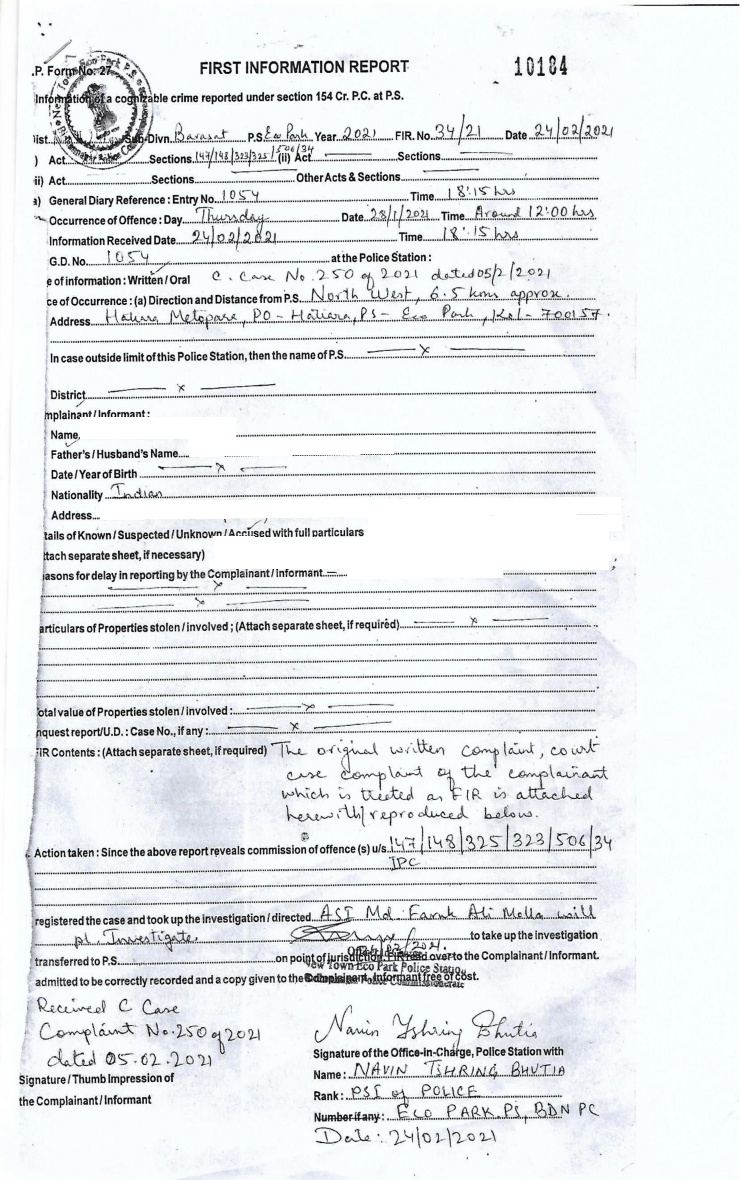 .P. Form No: 27
FIRST INFORMATION REPORT
10184
Information of a cognizable crime reported under section 154 Cr. P.C. at P.S.
Dist. Sub-Divn. Barasat P.S. Eco Park Year 2021 FIR. No. 34/21 Date 24/02/2021
) Act Sections 147/148/323/325/506/34 (ii) Act Sections
ii) Act Sections Other Acts & Sections
a) General Diary Reference : Entry No. 1054 Time 18:15 hrs
Occurrence of Offence : Day Thursday Date 28/1/2021 Time Around 12:00 hrs
Information Received Date 24/02/2021 Time 18:15 hrs
G.D. No. 1054 at the Police Station :
e of information : Written / Oral C. Case No. 250 of 2021 dated 05/2/2021
ce of Occurrence : (a) Direction and Distance from P.S. North West, 6.5 kms approx.
Address Hatiara Metopara, PO - Hatiara, PS - Eco Park, Kol - 700157.
In case outside limit of this Police Station, then the name of P.S. x
District x
mplainant / Informant :
Name
Father's / Husband's Name
Date / Year of Birth x
Nationality Indian
Address
tails of Known / Suspected / Unknown / Accused with full particulars
ttach separate sheet, if necessary)
asons for delay in reporting by the Complainant / Informant
x
x
articulars of Properties stolen / involved ; (Attach separate sheet, if required) x
otal value of Properties stolen / involved : x
nquest report/U.D. : Case No., if any : x
FIR Contents : (Attach separate sheet, if required) The original written complaint, court
case complaint of the complainant
which is treated as FIR is attached
herewith/reproduced below.
. Action taken : Since the above report reveals commission of offence (s) u/s. 147/148/325/323/506/34
IPC
registered the case and took up the investigation / directed ASI Md. Faruk Ali Molla will
pl. Investigate. to take up the investigation
transferred to P.S. on point of jurisdiction. FIR read over to the Complainant / Informant.
admitted to be correctly recorded and a copy given to the Complainant, Informant free of cost.
New Town Eco Park Police Statio
Received C Case
Complaint No. 250 of 2021
dated 05.02.2021
Signature / Thumb Impression of
the Complainant / Informant
Navin Tshring Bhutia
Signature of the Office-in-Charge, Police Station with
Name : NAVIN TSHRING BHUTIA
Rank : PSI of POLICE
Number if any : ECO PARK PS, BDN PC
Date : 24/02/2021